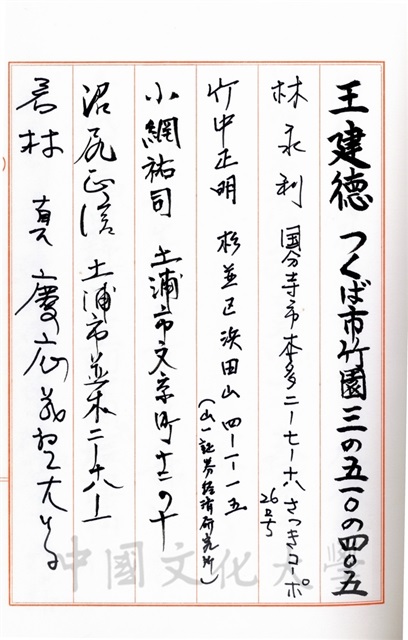 王建德 つくば市竹園三の五一〇の四〇五
林永利 国分寺市本多二ー七ー十六 さつきコーポ
26号
竹中正明 杉並区浜田山四ー一ー一五
(山一証券経済研究所)
小網祐司 土浦市文京町十二の十
沼尻正信 土浦市並木二ー十八ー一
若林真 慶応義塾大学
中國文化大學